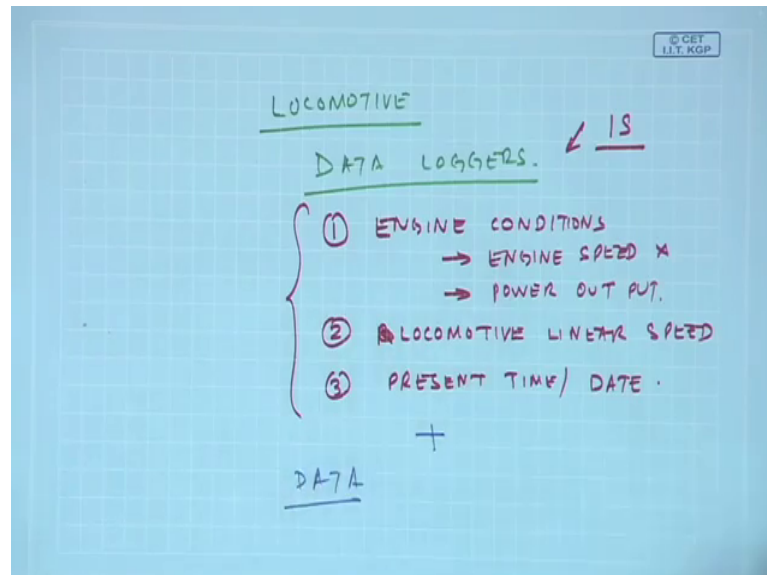 © CET
I.I.T. KGP
LOCOMOTIVE
DATA LOGGERS. ↙ 1S
① ENGINE CONDITIONS
→ ENGINE SPEED ×
→ POWER OUT PUT.
② LOCOMOTIVE LINEAR SPEED
③ PRESENT TIME/ DATE.
+
DATA